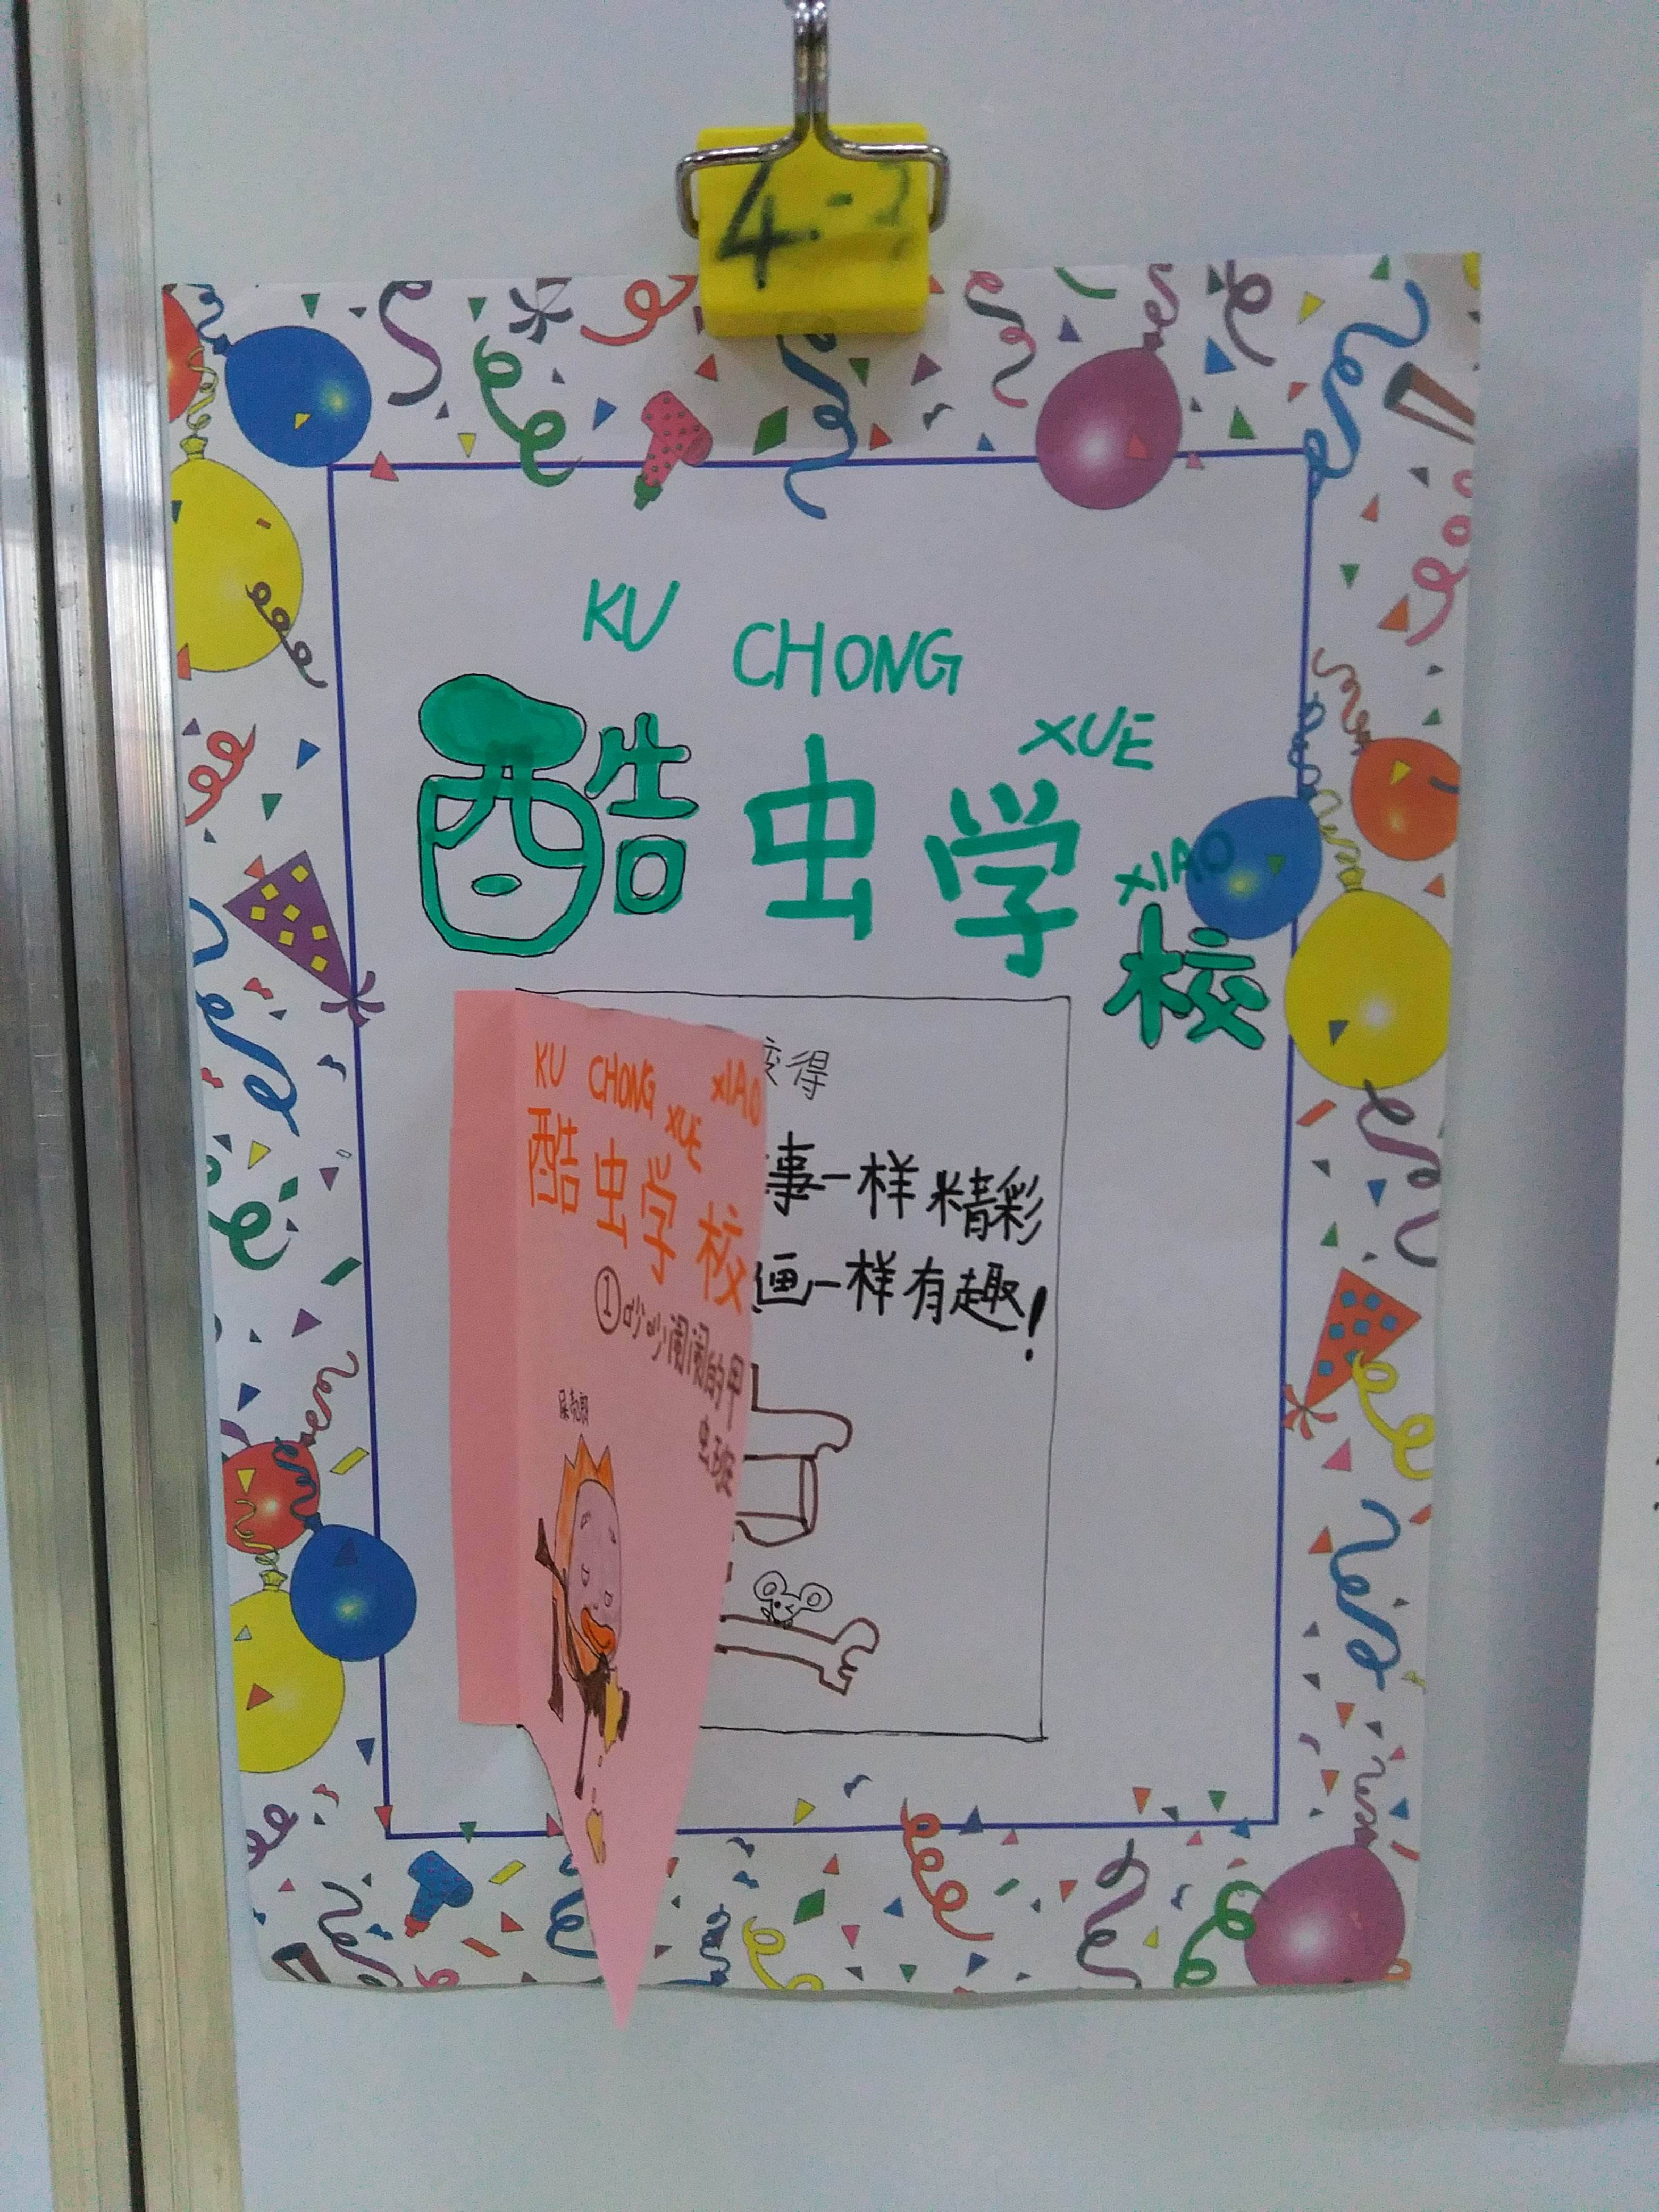 4-
KU CHONG XUE XIAO
酷虫学校
得
事一样精彩
画一样有趣!
KU CHONG XUE XIAO
酷虫学校
①吵吵闹闹的甲
虫班
屎壳郎